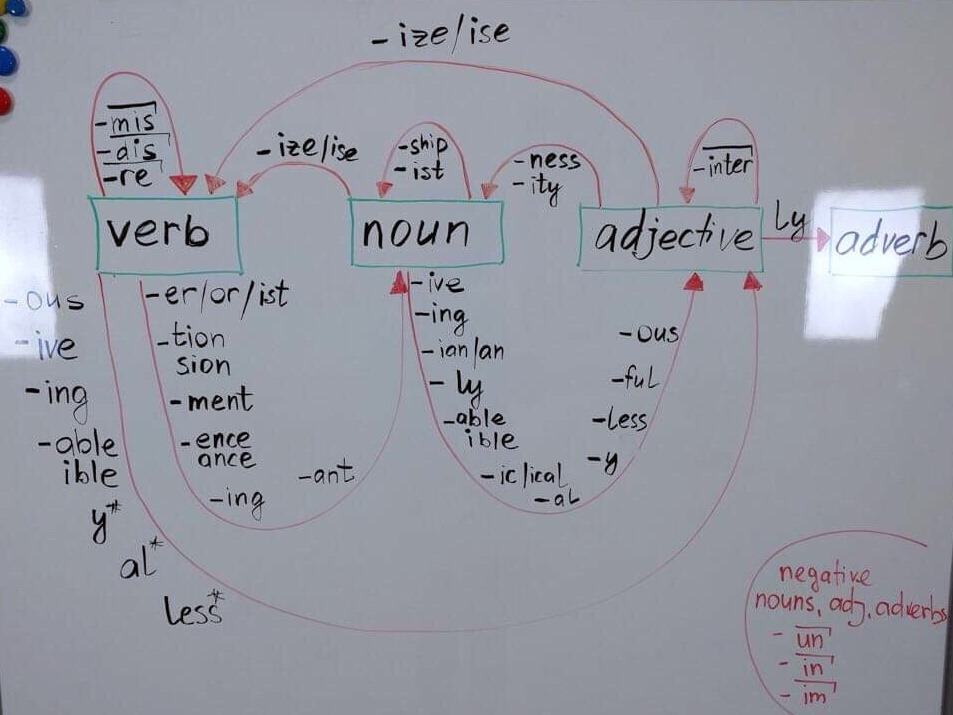 - ize/ise
- mis
- dis
- re
- ize/ise
- ship
- ist
- ness
- ity
- inter
verb
noun
adjective
Ly
adverb
- ous
- ive
- ing
- able
ible
y*
al*
less*
- er/or/ist
- tion
sion
- ment
- ence
ance
- ing
- ant
- ive
- ing
- ian/an
- ly
- able
ible
- ic/ical
- al
- ous
- ful
- less
- y
negative
nouns, adj, adverbs
- un
- in
- im